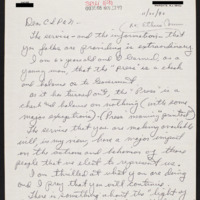 Dear CSPAN -
The service - and the information that
you folks are providing is extraordinary.
I am 60 years old and I learned, as a
young man, that the "press" is a check
and balance on to Government
as it has turned out, the "Press" is a
check and balance on nothing (with some
major exceptions.)
The service that you are making available
will, in my mind, have a major impact
on the actions and behavior of those
people that we elect to represent us.
I am thrilled at what you are doing
and I pray that you will continue.
There is something about the "light of